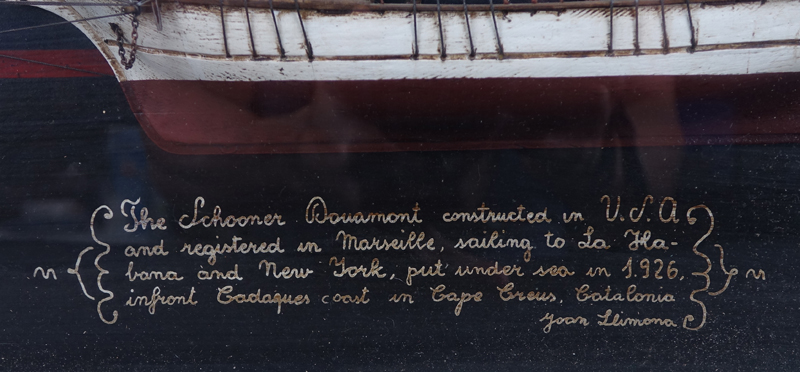 The Schooner Douamont constructed in U.S.A
and registered in Marseille, sailing to La Ha-
bana and New York, put under sea in 1.926,
infront Cadaques coast in Cape Creus, Catalonia
Joan Llimona